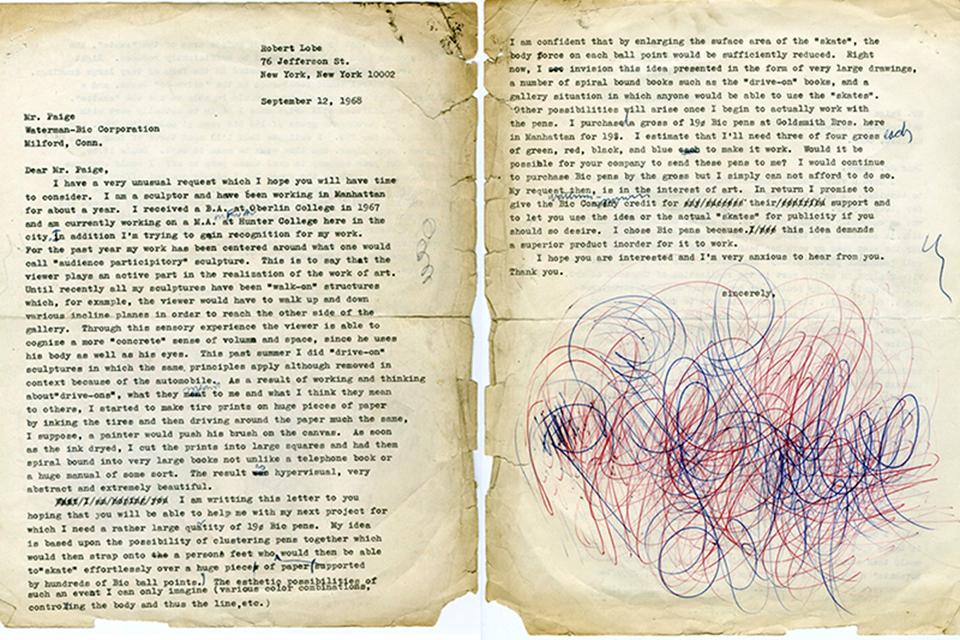 Robert Lobe
76 Jefferson St.
New York, New York 10002
September 12, 1968
Mr. Paige
Waterman-Bic Corporation
Milford, Conn.
Dear Mr. Paige,
I have a very unusual request which I hope you will have time
to consider. I am a sculptor and have been working in Manhattan
for about a year. I received a B.A. at Oberlin College in 1967
and am currently working on a M.A. at Hunter College here in the
city. In addition I'm trying to gain recognition for my work.
For the past year my work has been centered around what one would
call "audience participatory" sculpture. This is to say that the
viewer plays an active part in the realization of the work of art.
Until recently all my sculptures have been "walk-on" structures
which, for example, the viewer would have to walk up and down
various incline planes in order to reach the other side of the
gallery. Through this sensory experience the viewer is able to
cognize a more "concrete" sense of volume and space, since he uses
his body as well as his eyes. This past summer I did "drive-on"
sculptures in which the same principles apply although removed in
context because of the automobile. As a result of working and thinking
about "drive-ons", what they to me and what I think they mean
to others, I started to make tire prints on huge pieces of paper
by inking the tires and then driving around the paper much the same,
I suppose, a painter would push his brush on the canvas. As soon
as the ink dryed, I cut the prints into large squares and had them
spiral bound into very large books not unlike a telephone book or
a huge manual of some sort. The result is hypervisual, very
abstract and extremely beautiful.
I am writting this letter to you
hoping that you will be able to help me with my next project for
which I need a rather large quatity of 19¢ Bic pens. My idea
is based upon the possibility of clustering pens together which
would then strap onto the a persons feet who would then be able
to "skate" effortlessly over a huge piece of paper (supported
by hundreds of Bic ball points.) The esthetic possibilities of
such an event I can only imagine (various color combinations,
controling the body and thus the line, etc.)
I am confident that by enlarging the suface area of the "skate", the
body force on each ball point would be sufficiently reduced. Right
now, I invision this idea presented in the form of very large drawings,
a number of spiral bound books such as the "drive-on" books, and a
gallery situation in which anyone would be able to use the "skates".
Other possibilities will arise once I begin to actually work with
the pens. I purchased a gross of 19¢ Bic pens at Goldsmith Bros. here
in Manhattan for 19$. I estimate that I'll need three of four gross each
of green, red, black, and blue to make it work. Would it be
possible for your company to send these pens to me? I would continue
to purchase Bic pens by the gross but I simply can not afford to do so.
My request then, is in the interest of art. In return I promise to
give the Bic Company credit for their support and
to let you use the idea or the actual "skates" for publicity if you
should so desire. I chose Bic pens because this idea demands
a superior product inorder for it to work.
I hope you are interested and I'm very anxious to hear from you.
Thank you.
sincerely,